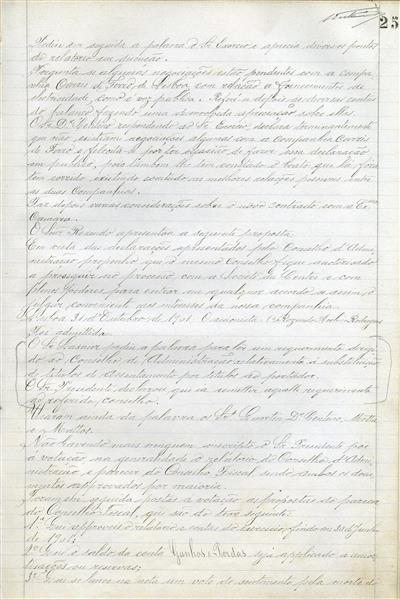 25
Pediu em seguida a palavra o Sr. Enercio e aprecia diversos pontos
do relatorio em questão.
Pergunta se algumas negociações estão pendentes com a Compa-
nhia Carris de Ferro de Lisboa com relação a fornecimentos de
electricidade, como é voz publica. Refere-se depois a diversas contas
do balanço fazendo uma demorada apreciação sobre ellas.
O Sr. Dr. Centeno respondendo ao Sr. declara terminantemente
que não existem negociações algumas com a Companhia Carris
de Ferro e felicita-se por ter occasião de fazer essa declaração
em publico, pois tambem lhe tem constado o boato que lá fóra
tem corrido, existindo comtudo as melhores relações possiveis entre
as duas Companhias.
Faz depois varias considerações sobre o novo contracto com a Exma
Camara.
O Snr. Rosendo apresentou a seguinte proposta:
Em vista das declarações apresentadas pelo Conselho d'Admi-
nistração proponho que o mesmo Conselho fique auctorisado
a proseguir no processo com a Société du Centre e com
plenos poderes para entrar em qualquer accordo se assim o
julgar conveniente aos interesses da nossa companhia.
Lisboa 31 d'Outubro de 1901. O accionista Rosendo Rodrigues
Foi admittida.
O Sr. pediu a palavra para ler um requerimento dirigi-
do ao Conselho de Administração relativamente á substituição
de titulos de Assentamento por titulos ao portador.
O Sr. Presidente declarou que ia remetter aquelle requerimento
ao referido conselho.
Usaram ainda da palavra os Srs. Dr. Centeno, Motta
e Mattos.
Não havendo mais ninguem inscripto o Sr. Presidente pôz
á votação na generalidade o relatorio do Conselho d'Admi-
nistração e parecer do Conselho Fiscal sendo ambos os docu-
mentos approvados por maioria.
Foram em seguida postas á votação as propostas do parecer
do Conselho Fiscal, que são do theor seguinte:
1º Que approveis o relatorio e contas do Exercicio findo em 30 de Junho
de 1901;
2º Que o saldo da conta Ganhos e Perdas seja applicado a amor-
tisações ou reservas;
3º Que se lance na acta um voto de sentimento pela morte do